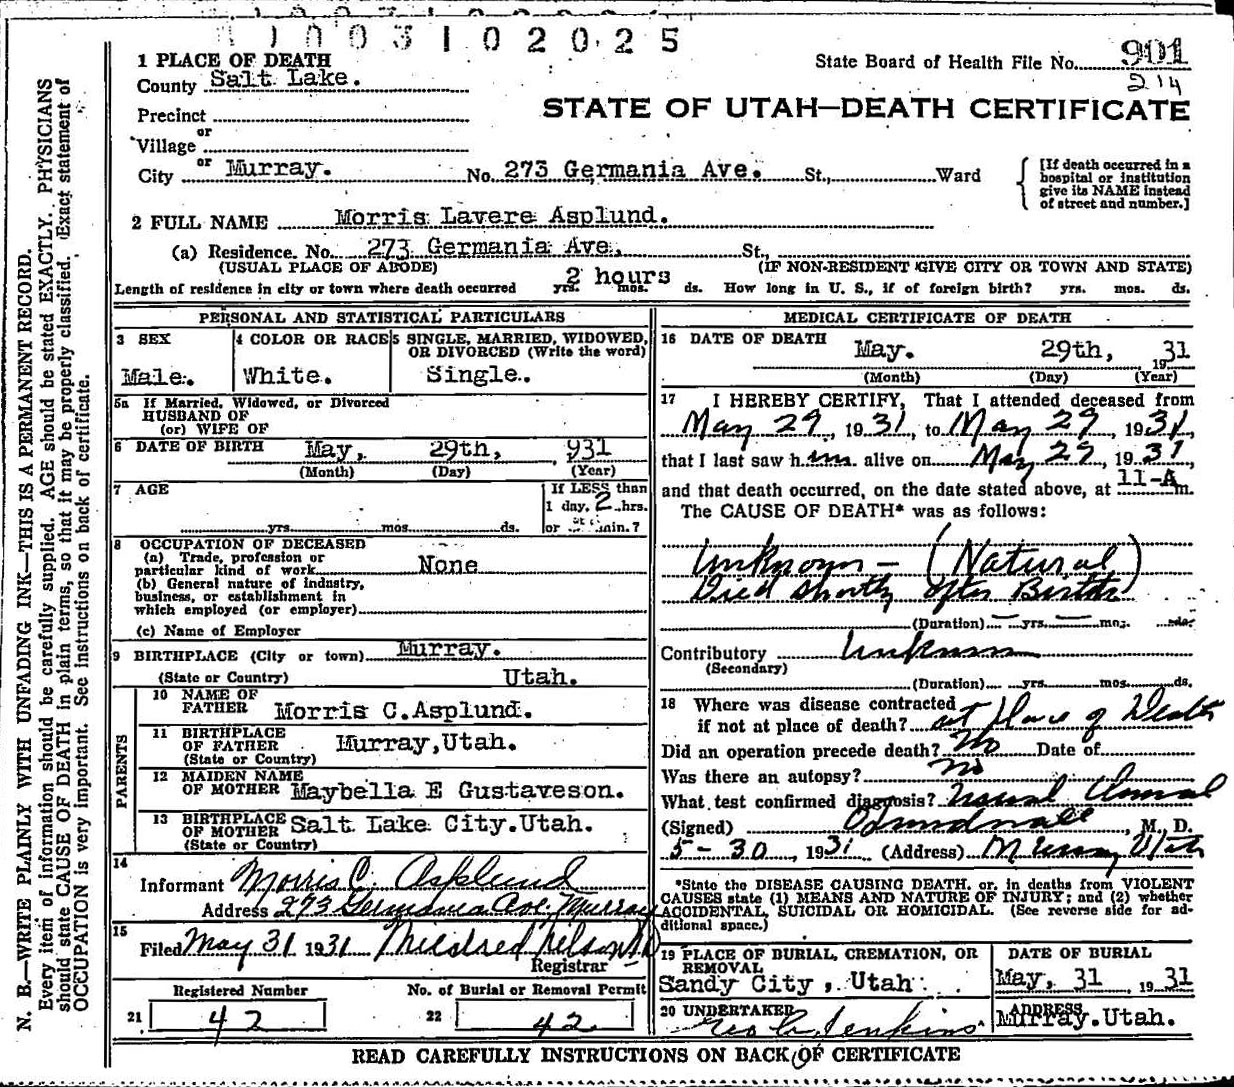 1003102025
1 PLACE OF DEATH
State Board of Health File No. 901
214
County Salt Lake.
STATE OF UTAH—DEATH CERTIFICATE
Precinct
or
Village
or
City Murray. No. 273 Germania Ave. St., Ward
[If death occurred in a hospital or institution give its NAME instead of street and number.]
2 FULL NAME Morris Lavere Asplund.
(a) Residence. No. 273 Germania Ave, St.,
(USUAL PLACE OF ABODE) (IF NON-RESIDENT GIVE CITY OR TOWN AND STATE)
2 hours
Length of residence in city or town where death occurred yrs. mos. ds. How long in U. S., if of foreign birth? yrs. mos. ds.
PERSONAL AND STATISTICAL PARTICULARS
3 SEX 4 COLOR OR RACE 5 SINGLE, MARRIED, WIDOWED,
OR DIVORCED (Write the word)
Male. White. Single.
5a If Married, Widowed, or Divorced
HUSBAND OF
(or) WIFE OF
6 DATE OF BIRTH May, 29th, 931
(Month) (Day) (Year)
7 AGE If LESS than
1 day, 2 hrs.
yrs. mos. ds. or min.?
8 OCCUPATION OF DECEASED
(a) Trade, profession or
particular kind of work None
(b) General nature of industry,
business, or establishment in
which employed (or employer)
(c) Name of Employer
9 BIRTHPLACE (City or town) Murray.
(State or Country) Utah.
PARENTS
10 NAME OF
FATHER Morris C.Asplund.
11 BIRTHPLACE
OF FATHER Murray,Utah.
(State or Country)
12 MAIDEN NAME
OF MOTHER Maybella E Gustaveson.
13 BIRTHPLACE
OF MOTHER Salt Lake City.Utah.
(State or Country)
14
Informant Morris C. Asplund
Address 273 Germania Ave. Murray
15
Filed May 31 1931 Mildred Nelson
Registrar
Registered Number No. of Burial or Removal Permit
21 42 22 42
MEDICAL CERTIFICATE OF DEATH
16 DATE OF DEATH May. 29th, 1931
(Month) (Day) (Year)
17 I HEREBY CERTIFY, That I attended deceased from
May 29, 1931, to May 29, 1931,
that I last saw him alive on May 29, 1931,
and that death occurred, on the date stated above, at 11-A m.
The CAUSE OF DEATH* was as follows:
Unknown - (Natural)
Died shortly after Birth
(Duration) yrs. mos. ds.
Contributory Unknown
(Secondary)
(Duration) yrs. mos. ds.
18 Where was disease contracted
if not at place of death? at place of Death
Did an operation precede death? No Date of
Was there an autopsy? no
What test confirmed diagnosis? usual
(Signed) , M. D.
5-30, 1931 (Address) Murray Utah
*State the DISEASE CAUSING DEATH, or, in deaths from VIOLENT
CAUSES state (1) MEANS AND NATURE OF INJURY; and (2) whether
ACCIDENTAL, SUICIDAL OR HOMICIDAL. (See reverse side for ad-
ditional space.)
19 PLACE OF BURIAL, CREMATION, OR DATE OF BURIAL
REMOVAL
Sandy City, Utah May, 31 1931
20 UNDERTAKER ADDRESS
Geo C. Jenkins Murray.Utah.
READ CAREFULLY INSTRUCTIONS ON BACK OF CERTIFICATE
N. B.—WRITE PLAINLY WITH UNFADING INK—THIS IS A PERMANENT RECORD.
Every item of information should be carefully supplied. AGE should be stated EXACTLY. PHYSICIANS
should state CAUSE OF DEATH in plain terms, so that it may be properly classified. Exact statement of
OCCUPATION is very important. See instructions on back of certificate.